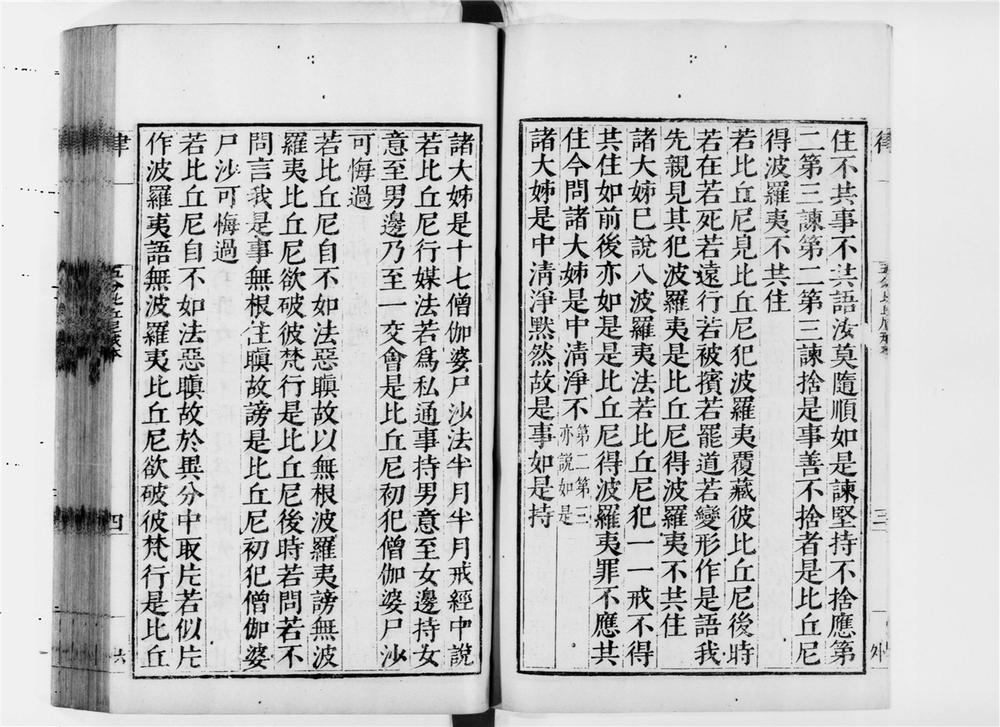 住不共事不共語汝莫隨順如是諫堅持不捨應第
二第三諫第二第三諫捨是事善不捨者是比丘尼
得波羅夷不共住
若比丘尼見比丘尼犯波羅夷覆藏彼比丘尼後時
若在若死若遠行若被擯若罷道若變形作是語我
先親見其犯波羅夷是比丘尼得波羅夷不共住
諸大姊已說八波羅夷法若比丘尼犯一一戒不得
共住如前後亦如是是比丘尼得波羅夷罪不應共
住今問諸大姊是中清淨不第二第三亦說如是
諸大姊是中清淨默然故是事如是持
諸大姊是十七僧伽婆尸沙法半月半月戒經中說
若比丘尼行媒法若爲私通事持男意至女邊持女
意至男邊乃至一交會是比丘尼初犯僧伽婆尸沙
可悔過
若比丘尼自不如法惡瞋故以無根波羅夷謗無波
羅夷比丘尼欲破彼梵行是比丘尼後時若問若不
問言我是事無根住瞋故謗是比丘尼初犯僧伽婆
尸沙可悔過
若比丘尼自不如法惡瞋故於異分中取片若似片
作波羅夷語無波羅夷比丘尼欲破彼梵行是比丘
律
四